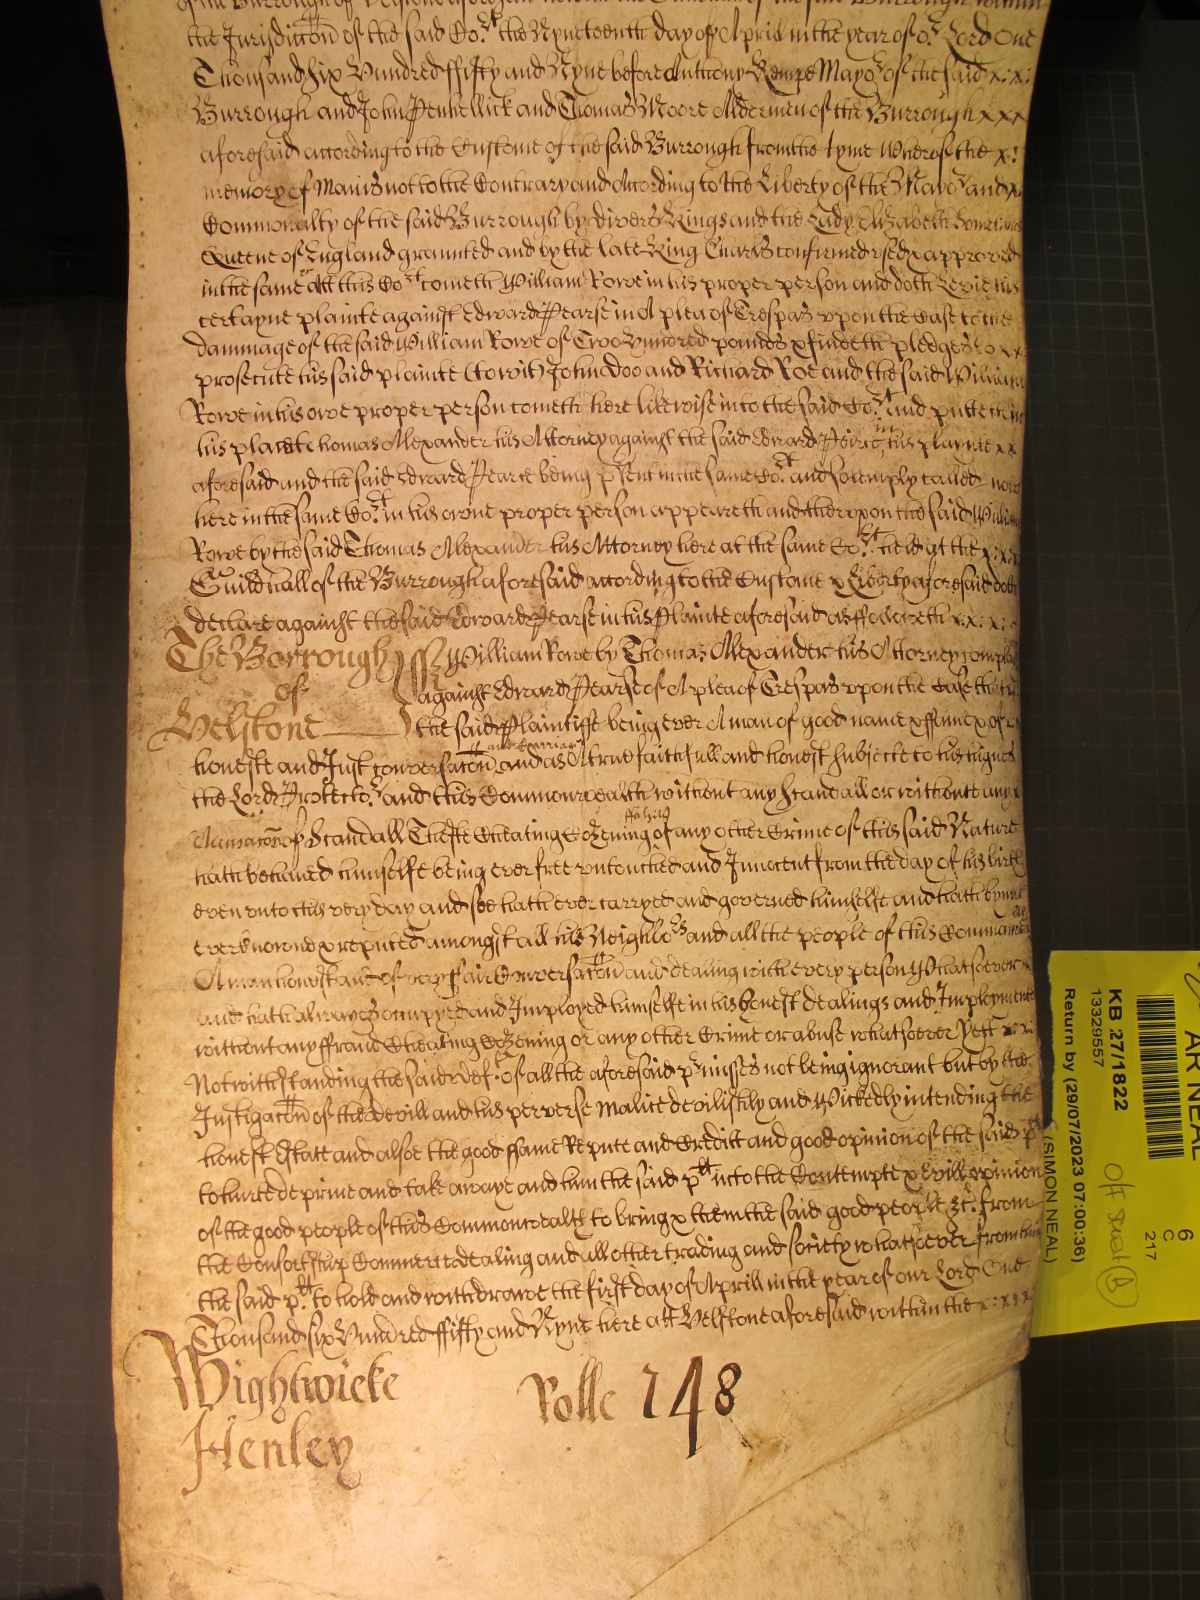 the Jurisdiccõn of the said Cort the Nyneteenth day of Aprill in the year of or Lord One
Thousand six Hundred ffifty and Nyne before Anthony Kempe Mayor of the said x:x:
Burrough and John Penhellick and Thomas Moore Aldermen of the Burrough x x x
aforesaid according to the Custome of the said Burrough from the tyme Whereof the x:
memory of Man is not to the Contrary and According to the Liberty of the Mayor and x
Commonalty of the said Burrough by divers Kings and the Lady Elizabeth
Queene of England graunted and by the late King Charls confirmed used & approved
in the same Att this Cort cometh William Rowe in his proper person and doth Levie his
certayne plainte against Edward Pearse in A plea of Trespas upon the Case to the
dammage of the said William Rowe of Two Hundred pounds & findeth pledges to x x
prosecute his said plainte (to wit) John Doo and Richard Roe and the said William
Rowe in his owe proper person cometh here likewise into the said Cort And putteth in
his place Thomas Alexander his Attorney against the said Edward Peirce in his playnte x x
aforesaid and the said Edward Pearce being p'sent in the same Cort and solemply called now
here in the same Cort in his owne proper person appeareth and thereupon the said William
Rowe by the said Thomas Alexander his Attorney here at the same Cort held at the x:x:x
Guildhall of the Burrough aforesaid according to the Custome & Liberty aforesaid doth
declare against the said Edward Pearse in his Plainte aforesaid as ffoloweth x.x.x:
The Borrough of Helstone ss William Rowe by Thomas Alexander his Attorney complai
against Edward Pearse of A plea of Trespas upon the Case that
the said Plaintiffe being ever A man of good name & ffame & of
honeste and Just conversacõn and carriage and as A true faithfull and honest subjecte to his highnes
the Lord Protector and this Commonwealth without any scandall or without any x
Accusacõn of Scandall Thefte Cheating Cozening ffalshood of any other Crime of this said Nature
hath behaved himselfe being ever free untouched and Innocent from the day of his birth
even unto this very day and soe hath ever carryed and governed himselfe and hath bynn
ever knowne & reputed amongst all his Neighbors and all the people of this Common
A man honest and of very fair Conversacõn and dealing with every person Whatsoever
and hath alwayes occupyed and Imployed himselfe in his honest dealings and Imployments
without any ffraud Cheating Cozening or any other Crime or abuse whatsoever Yett x:x:
Notwithstanding the said Edwd of all the aforesaid pr'misses not being ignorant but by the
Instigacõn of the Devill and his perverse Malice devilishly and Wickedly intending the
honest Estate and alsoe the good ffame Repute and Creditt and good opinion of the said plt
to hurte deprive and take awaye and him the said plt into the Contempte & Evill opinion
of the good people of this Commonwealth to bring & them the said good people &c. from
the Consortship Commerce dealing and all other trading and society whatsoever from him
the said plt to hold and withdrawe the first day of Aprill in the year of our Lord One
Thousand six Hundred ffifty and Nyne here att Helstone aforesaid within the x:x:x
Wightwicke
Henley
Rolle 148
AR NEAL
KB 27/1822
13329557
Return by (29/07/2023 07:00:36)
(SIMON NEAL)
6
C
217